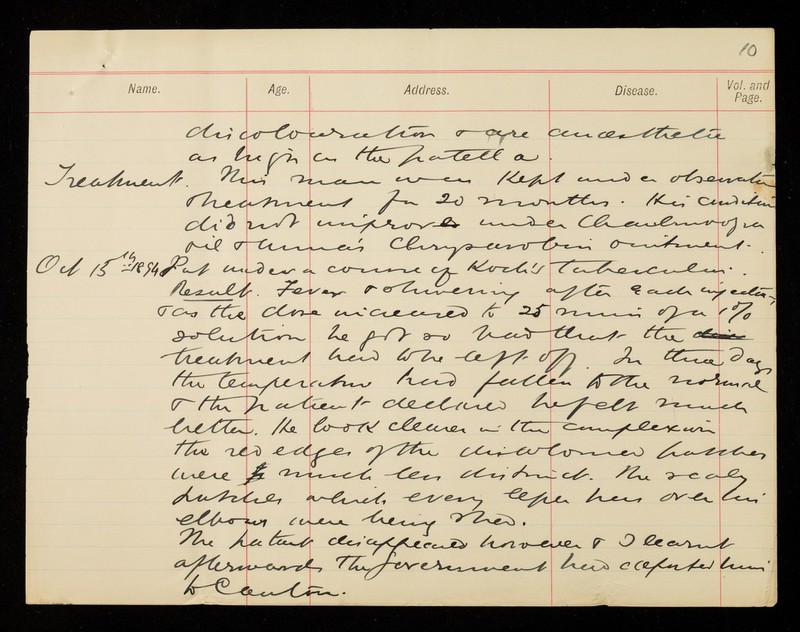 10
Name. Age. Address. Disease. Vol. and Page.
discolouration & are anæsthetic
as high as the patella.
Treatment. This man was kept under observation
& treatment for 20 months. His condition
did not improve under Chaulmoogra
oil & Unna's Chrysarobin ointment.
Oct 15th 1894 Put under a course of Koch's tuberculin.
Result. Fever & shivering after each injection,
& as the dose increased to 25 mins of a 1%
solution he got so bad that the
treatment had to be left off. In three days
the temperature had fallen to the normal
& the patient declared he felt much
better. He look clearer in the complexion
the red edges of the discoloured patches
were much less distinct. The scaly
patches which every leper has over his
elbows were being shed.
The patient disappeared however & I learnt
afterwards the Government had deported him
to Canton.